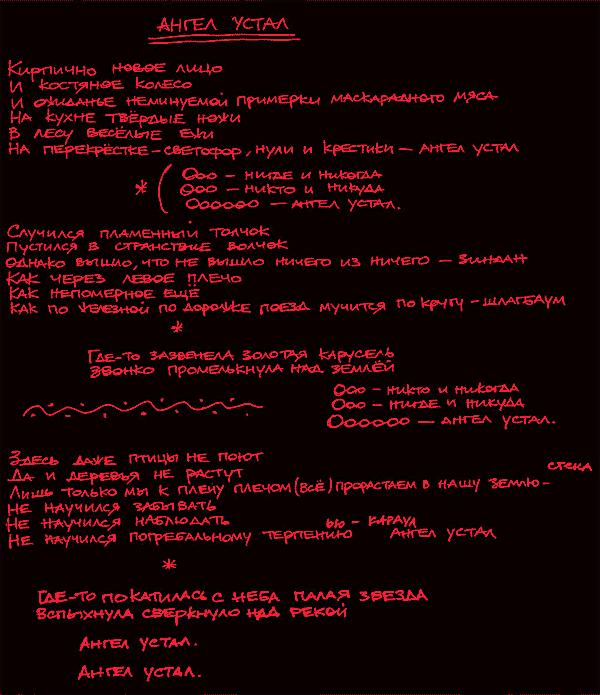 АНГЕЛ УСТАЛ
Кирпично новое лицо
И костяное колесо
И ожиданье неминуемой примерки маскарадного мяса
На кухне твёрдые ножи
В лесу весёлые ежи
На перекрёстке - светофор, нули и крестики - ангел устал
* ( Ооо - нигде и никогда
Ооо - никто и никуда
Оооооо - ангел устал.
Случился пламенный толчок
Пустился в странствие волчок
Однако вышло, что не вышло ничего из ничего - зиндан
Как через левое плечо
Как непомерное ещё
Как по железной по дорожке поезд мучится по кругу - шлагбаум
*
Где-то зазвенела золотая карусель
Звонко промелькнула над землёй
Ооо - никто и никогда
Ооо - нигде и никуда
Оооооо - ангел устал.
Здесь даже птицы не поют
Да и деревья не растут
Лишь только мы к плечу плечом (всё) прорастаем в нашу землю - стена
Не научился забывать
Не научился наблюдать
Не научился погребальному терпению ью - караул Ангел устал
*
Где-то покатилась с неба палая звезда
Вспыхнула сверкнуло над рекой
Ангел устал.
Ангел устал.